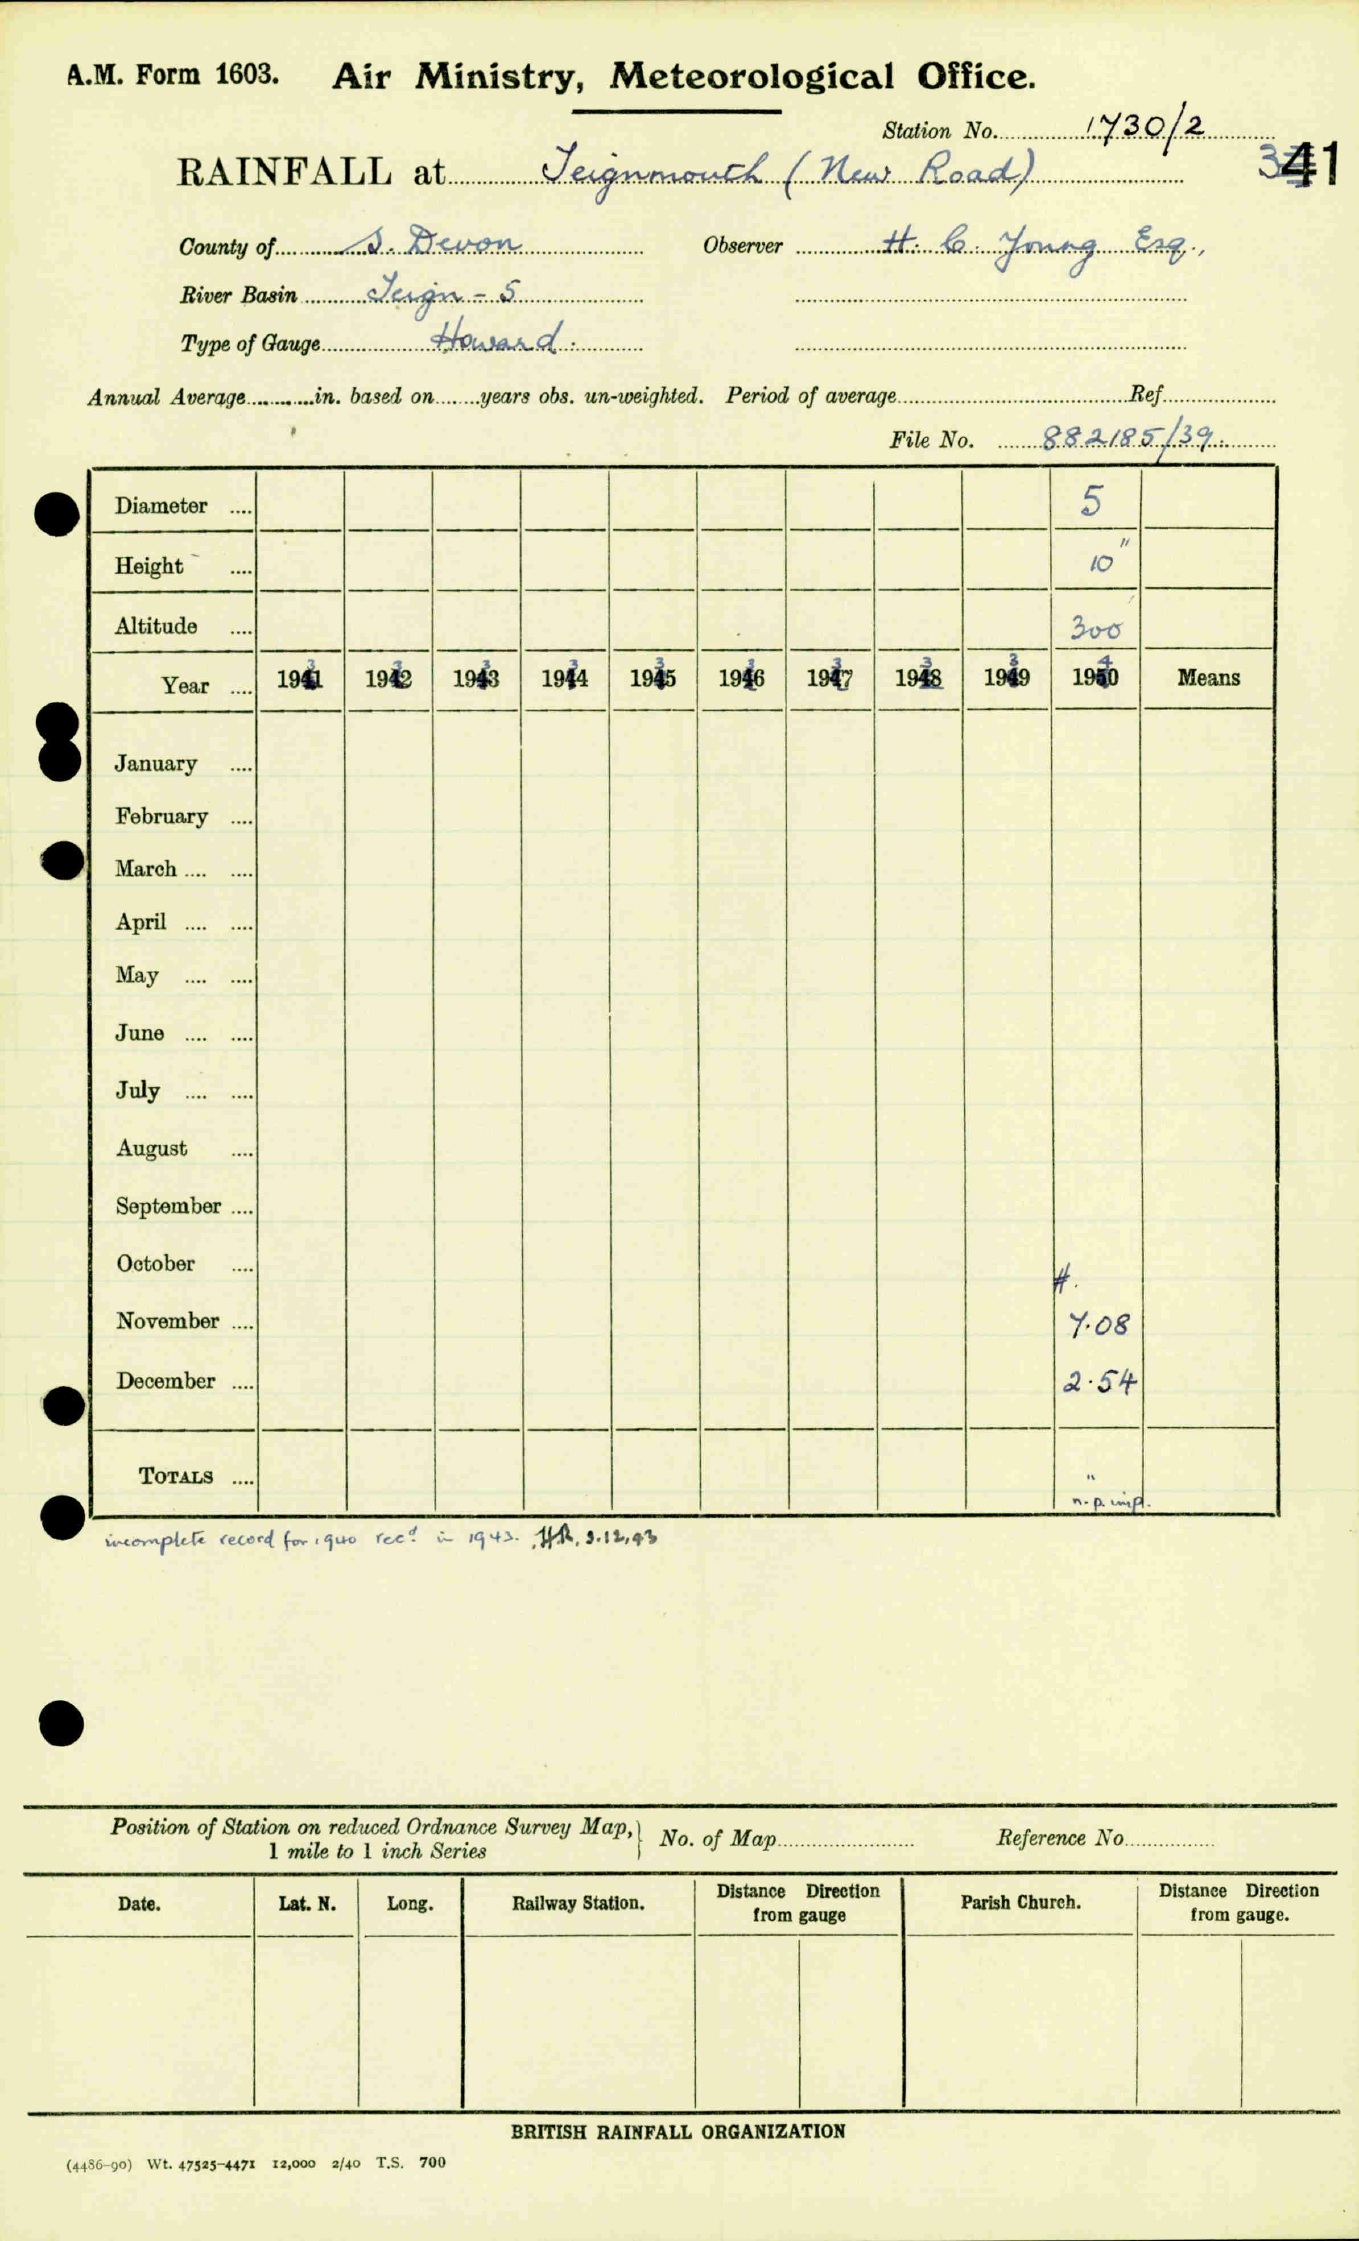 A.M. Form 1603. Air Ministry, Meteorological Office.
Station No. 1730/2
RAINFALL at Teignmouth (New Road)
41
County of S. Devon Observer H. C. Young Esq.,
River Basin Teign - 5
Type of Gauge Howard.
Annual Average in. based on years obs. un-weighted. Period of average Ref
File No. 882185/39.
Diameter .... 5
Height .... 10"
Altitude .... 300
Year .... 1941 3 1942 3 1943 3 1944 3 1945 3 1946 3 1947 3 1948 3 1949 3 1950 4 Means
January ....
February ....
March .... ....
April .... ....
May .... ....
June .... ....
July .... ....
August ....
September ....
October ....
#.
November .... 7.08
December .... 2.54
TOTALS .... "
n.p. imp.
incomplete record for 1940 recd. in 1943. HR, 3.12.43
Position of Station on reduced Ordnance Survey Map,
1 mile to 1 inch Series } No. of Map Reference No
Date. Lat. N. Long. Railway Station. Distance Direction from gauge Parish Church. Distance Direction from gauge.
BRITISH RAINFALL ORGANIZATION
(4486-90) Wt. 47525-4471 12,000 2/40 T.S. 700